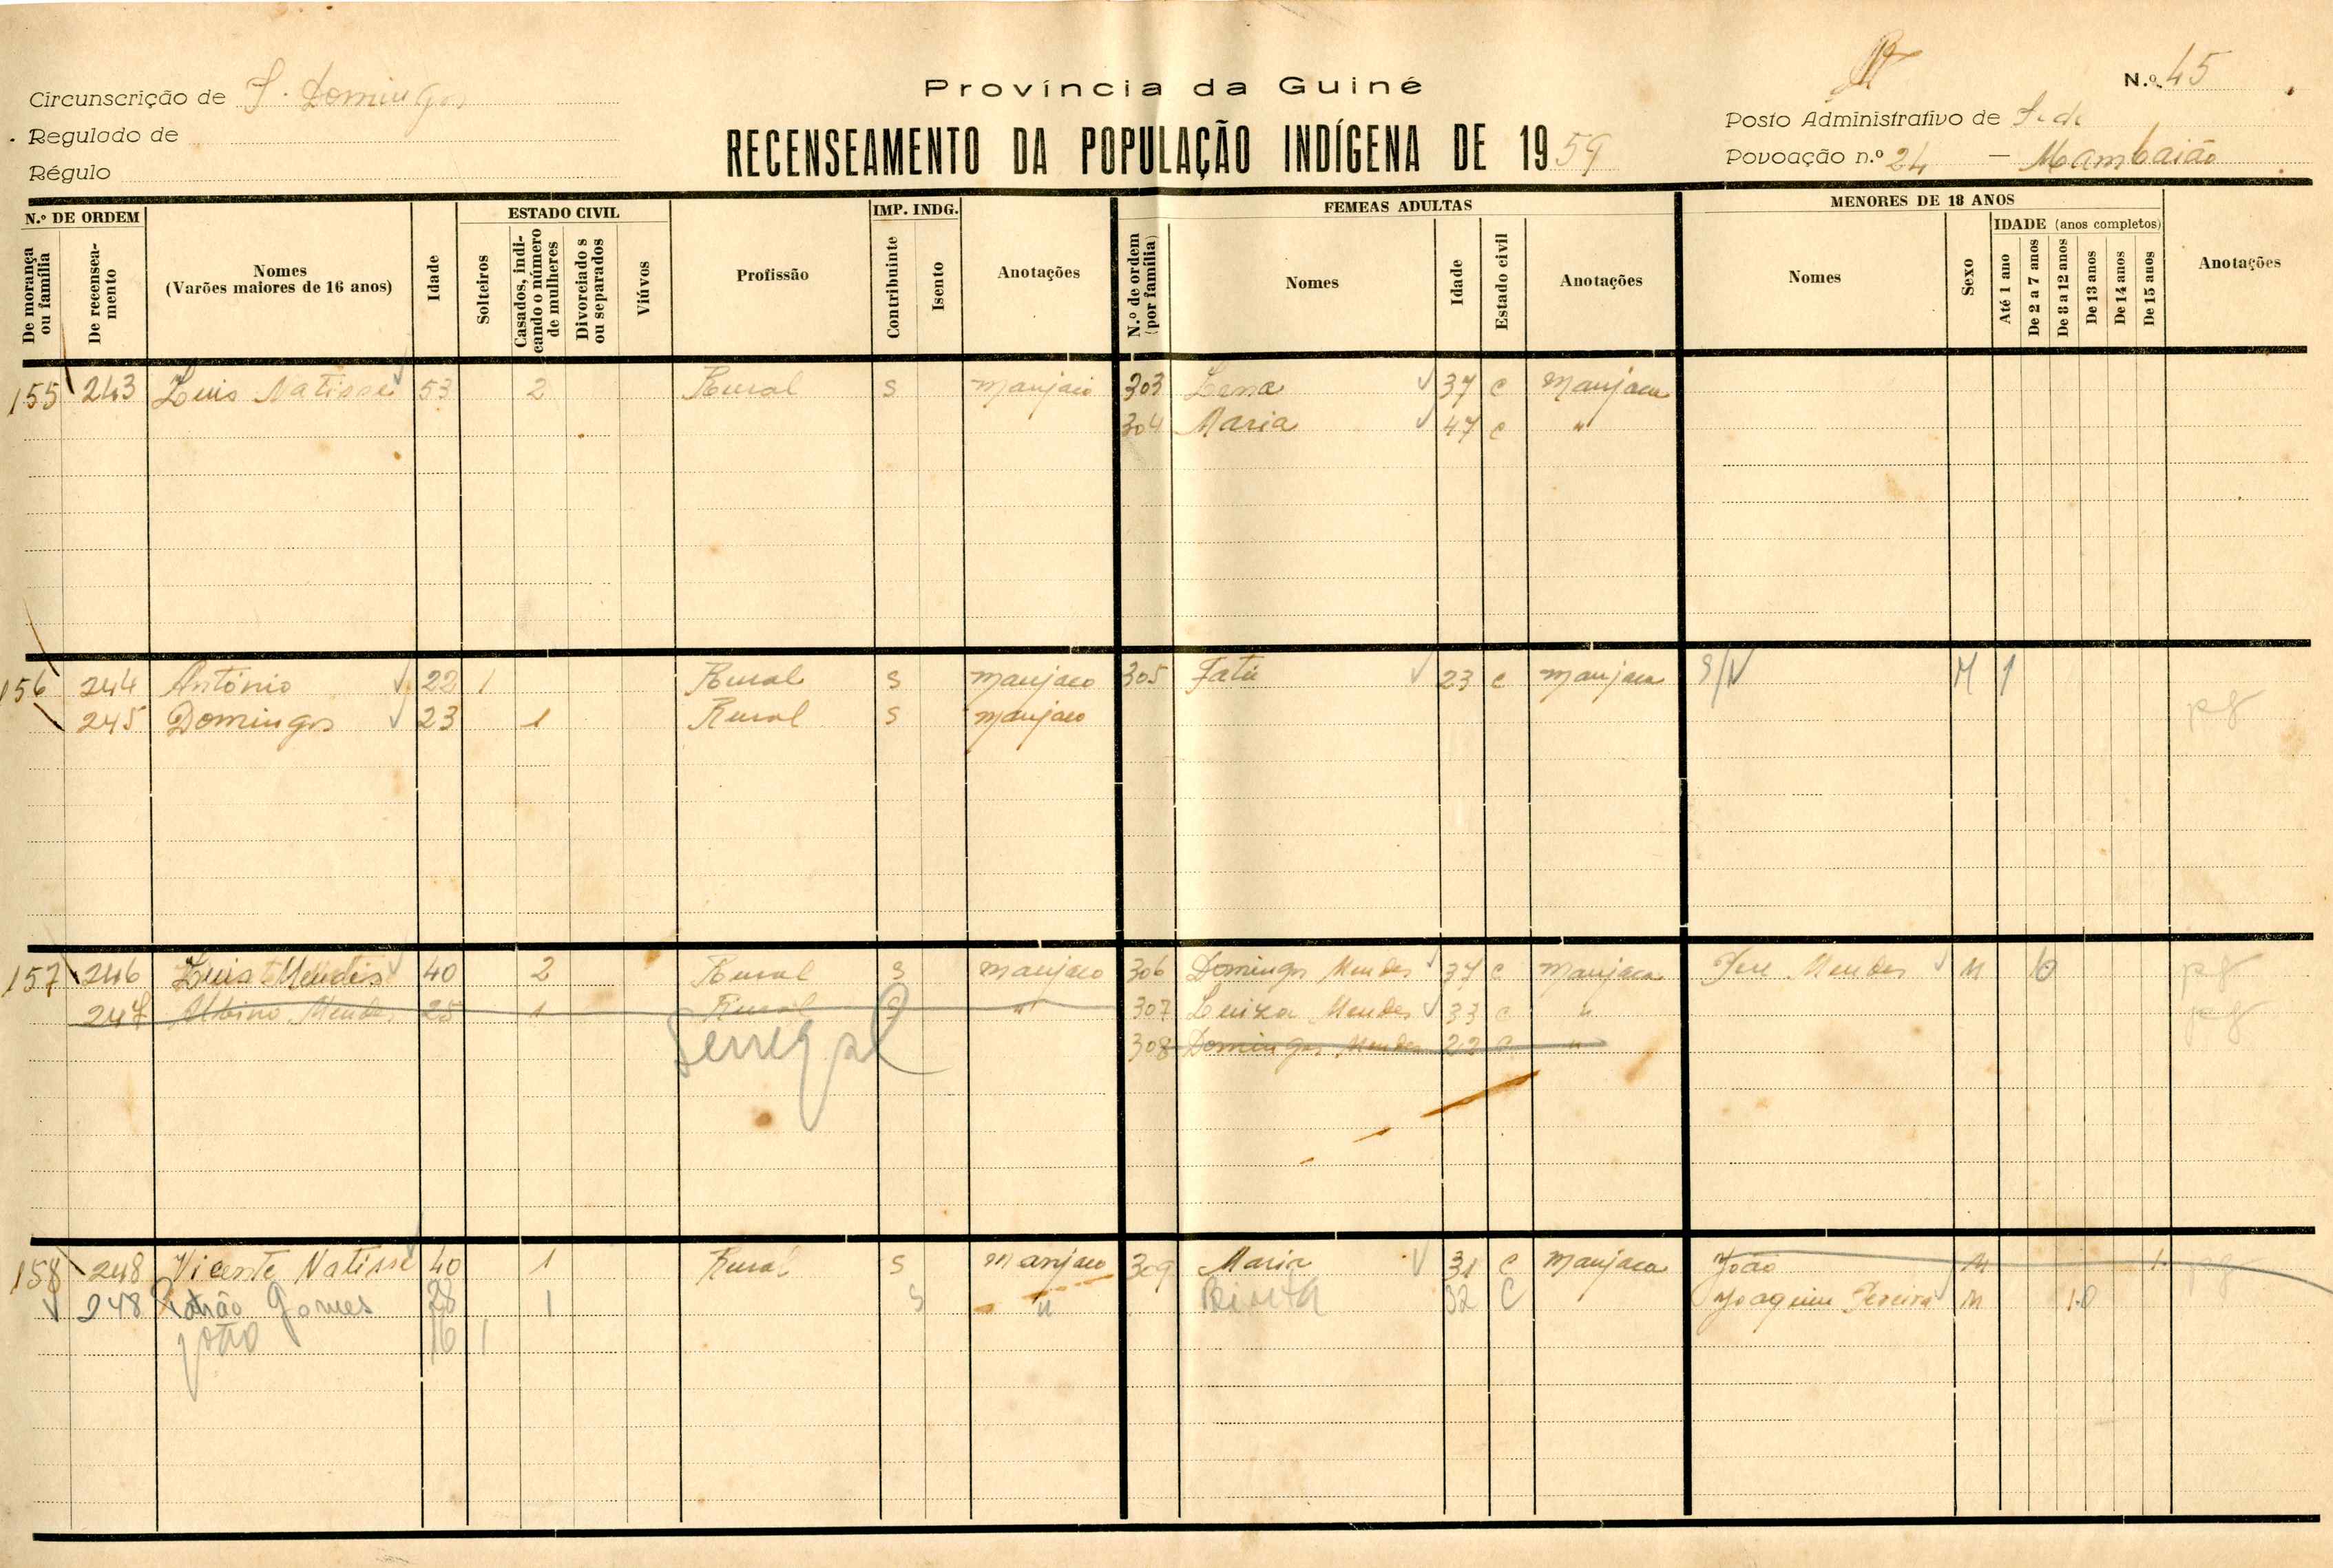 Circunscrição de S. Domingos
Regulado de
Régulo
Província da Guiné
RECENSEAMENTO DA POPULAÇÃO INDÍGENA DE 1959
N.º 45
Posto Administrativo de Sede
Povoação n.º 24 — Mambaião
N.º DE ORDEM
De morança ou família
De recenseamento
Nomes
(Varões maiores de 16 anos)
Idade
ESTADO CIVIL
Solteiros
Casados, indicando o número de mulheres
Divorciado s ou separados
Viúvos
Profissão
IMP. INDG.
Contribuinte
Isento
Anotações
FEMEAS ADULTAS
N.º de ordem (por família)
Nomes
Idade
Estado civil
Anotações
MENORES DE 18 ANOS
Nomes
Sexo
IDADE (anos completos)
Até 1 ano
De 2 a 7 anos
De 8 a 12 anos
De 13 anos
De 14 anos
De 15 anos
Anotações
155 243 Luis Natisse 53 2 Rural S manjaco 303 Lena 37 c manjaca
304 Maria 47 c "
156 244 António 22 1 Rural S manjaco 305 Fatú 23 c manjaca S/N M 1
245 Domingos 23 1 Rural S manjaco pg
157 246 Luis Mendes 40 2 Rural S manjaco 306 Domingos Mendes 37 c manjaca José Mendes M 6 pg
247 Albino Mendes 25 1 Rural S " 307 Luiza Mendes 33 c " pg
Senegal 308 Domingas Mendes 22 c "
158 248 Vicente Natisse 40 1 Rural S manjaco 309 Maria 31 c manjaca João M 1 pg
248 Gomes 28 1 S " 32 C Joaquim Pereira M 10
João 16 1